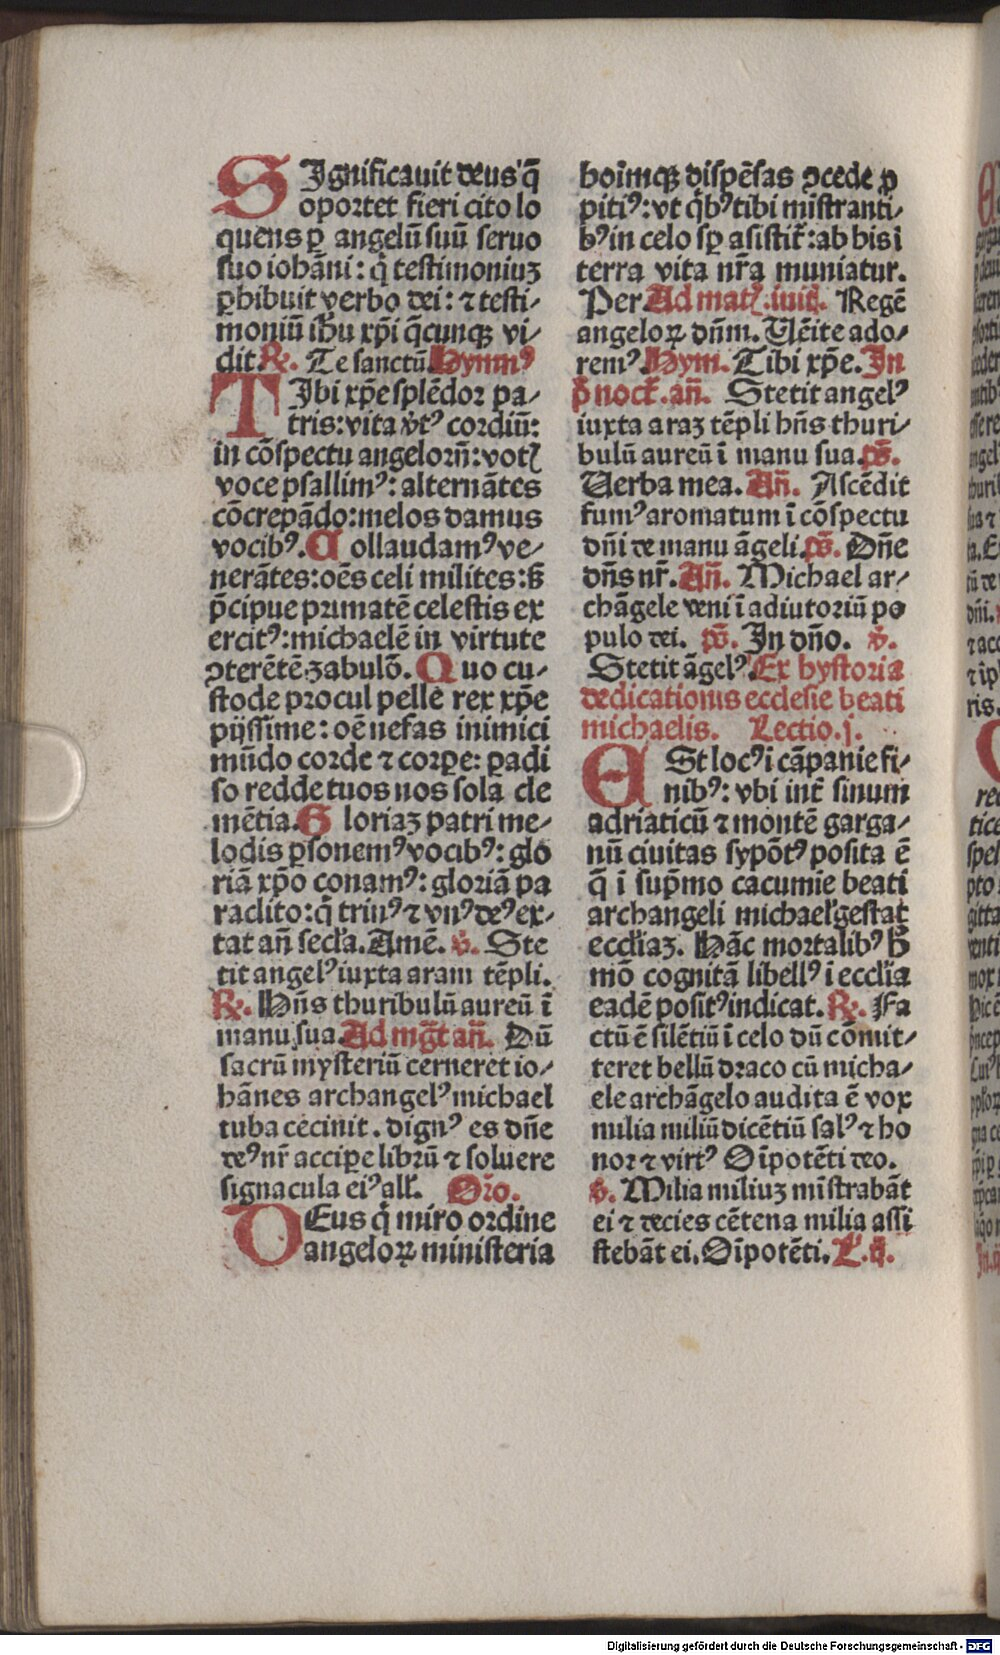 SIgnificauit deus q̄
oportet fieri cito lo
quens ꝑ angelū suū seruo
suo iohāni: q̇ testimoniuꝫ
ꝑhibuit verbo dei: ⁊ testi⸗
moniū ihu xp̄i q̄cunqꝫ vi⸗
dit. ℞. Te sanctū. Hymnꝰ
TIbi xp̄e splēdor pa⸗
tris: vita v̇tꝰ cordiū:
in cōspectu angelorū: votꝭ
voce psallimꝰ: alternātes
cōcrepādo: melos damus
vocibꝰ. Collaudamꝰ ve⸗
nerātes: oēs celi milites: ß
p̄cipue primatē celestis ex
ercitꝰ: michaelē in virtute
ꝯterētē zabulō. Quo cu⸗
stode procul pelle rex xp̄e
pijssime: oē nefas inimici
mūdo corde ⁊ corꝑe: ꝑadi
so redde tuos nos sola cle
mētia. Gloriaꝫ patri me⸗
lodis ꝑsonemꝰ vocibꝰ: glo
riā xp̄o canamꝰ: gloriā pa
raclito: q̇ trinꝰ ⁊ vnꝰ deꝰ ex⸗
tat an̄ secl̄a. Amē. ꝟ. Ste
tit angelꝰ iuxta aram tēpli.
℞. Hn̄s thuribulū aureū ī
manu sua. Ad mḡt an̄. Dū
sacrū mysteriū cerneret io⸗
hānes archangelꝰ michael
tuba cecinit. dignꝰ es dn̄e
deꝰ nr̄ accipe librū ⁊ soluere
signacula eiꝰ all'. Orō.
DEus q̇ miro ordine
angeloꝝ ministeria
hoīmqꝫ dispēsas ꝯcede ꝓ
pitiꝰ: vt q̇bꝰ tibi mīstranti⸗
bꝰ in celo sꝑ asistit̄: ab his ī
terra vita nr̄a muniatur.
Per. Ad matꝭ. iuit̄. Regē
angeloꝝ dn̄m. Uēite ado⸗
remꝰ. Hym. Tibi xp̄e. In
p̄ noct̄. an̄. Stetit angelꝰ
iuxta araꝫ tēpli hn̄s thuri⸗
bulū aureū ī manu sua. ps̄.
Uerba mea. An̄. Ascēdit
fumꝰ aromatum ī cōspectu
dn̄i de manu āgeli. ps̄. Dn̄e
dn̄s nr̄. An̄. Michael ar⸗
chāgele veni ī adiutoriū po
pulo dei. ps̄. In dn̄o. ꝟ.
Stetit āgelꝰ. Ex hystoria
dedicationis ecclesie beati
michaelis. Lectio. j.
ESt locꝰ ī cāpanie fi⸗
nibꝰ: vbi int̄ sinum
adriaticū ⁊ montē garga⸗
nū ciuitas sypōtꝰ posita ē
q̄ ī sup̄mo cacumīe beati
archangeli michael' gestat
eccl̄iaꝫ. Hāc mortalibꝰ h̄
mō cognitā libellꝰ ī eccl̄ia
eadē positꝰ indicat. ℞. Fa
ctū ē silētiū ī celo dū cōmit⸗
teret bellū draco cū micha⸗
ele archāgelo audita ē vox
milia miliū dicētiū salꝰ ⁊ ho
nor ⁊ virtꝰ Oīpotēti deo.
ꝟ. Milia miliuꝫ mīstrabāt
ei ⁊ decies cētena milia assi
stebāt ei. Oīpotēti. L'. ij.
Digitalisierung gefördert durch die Deutsche Forschungsgemeinschaft - DFG